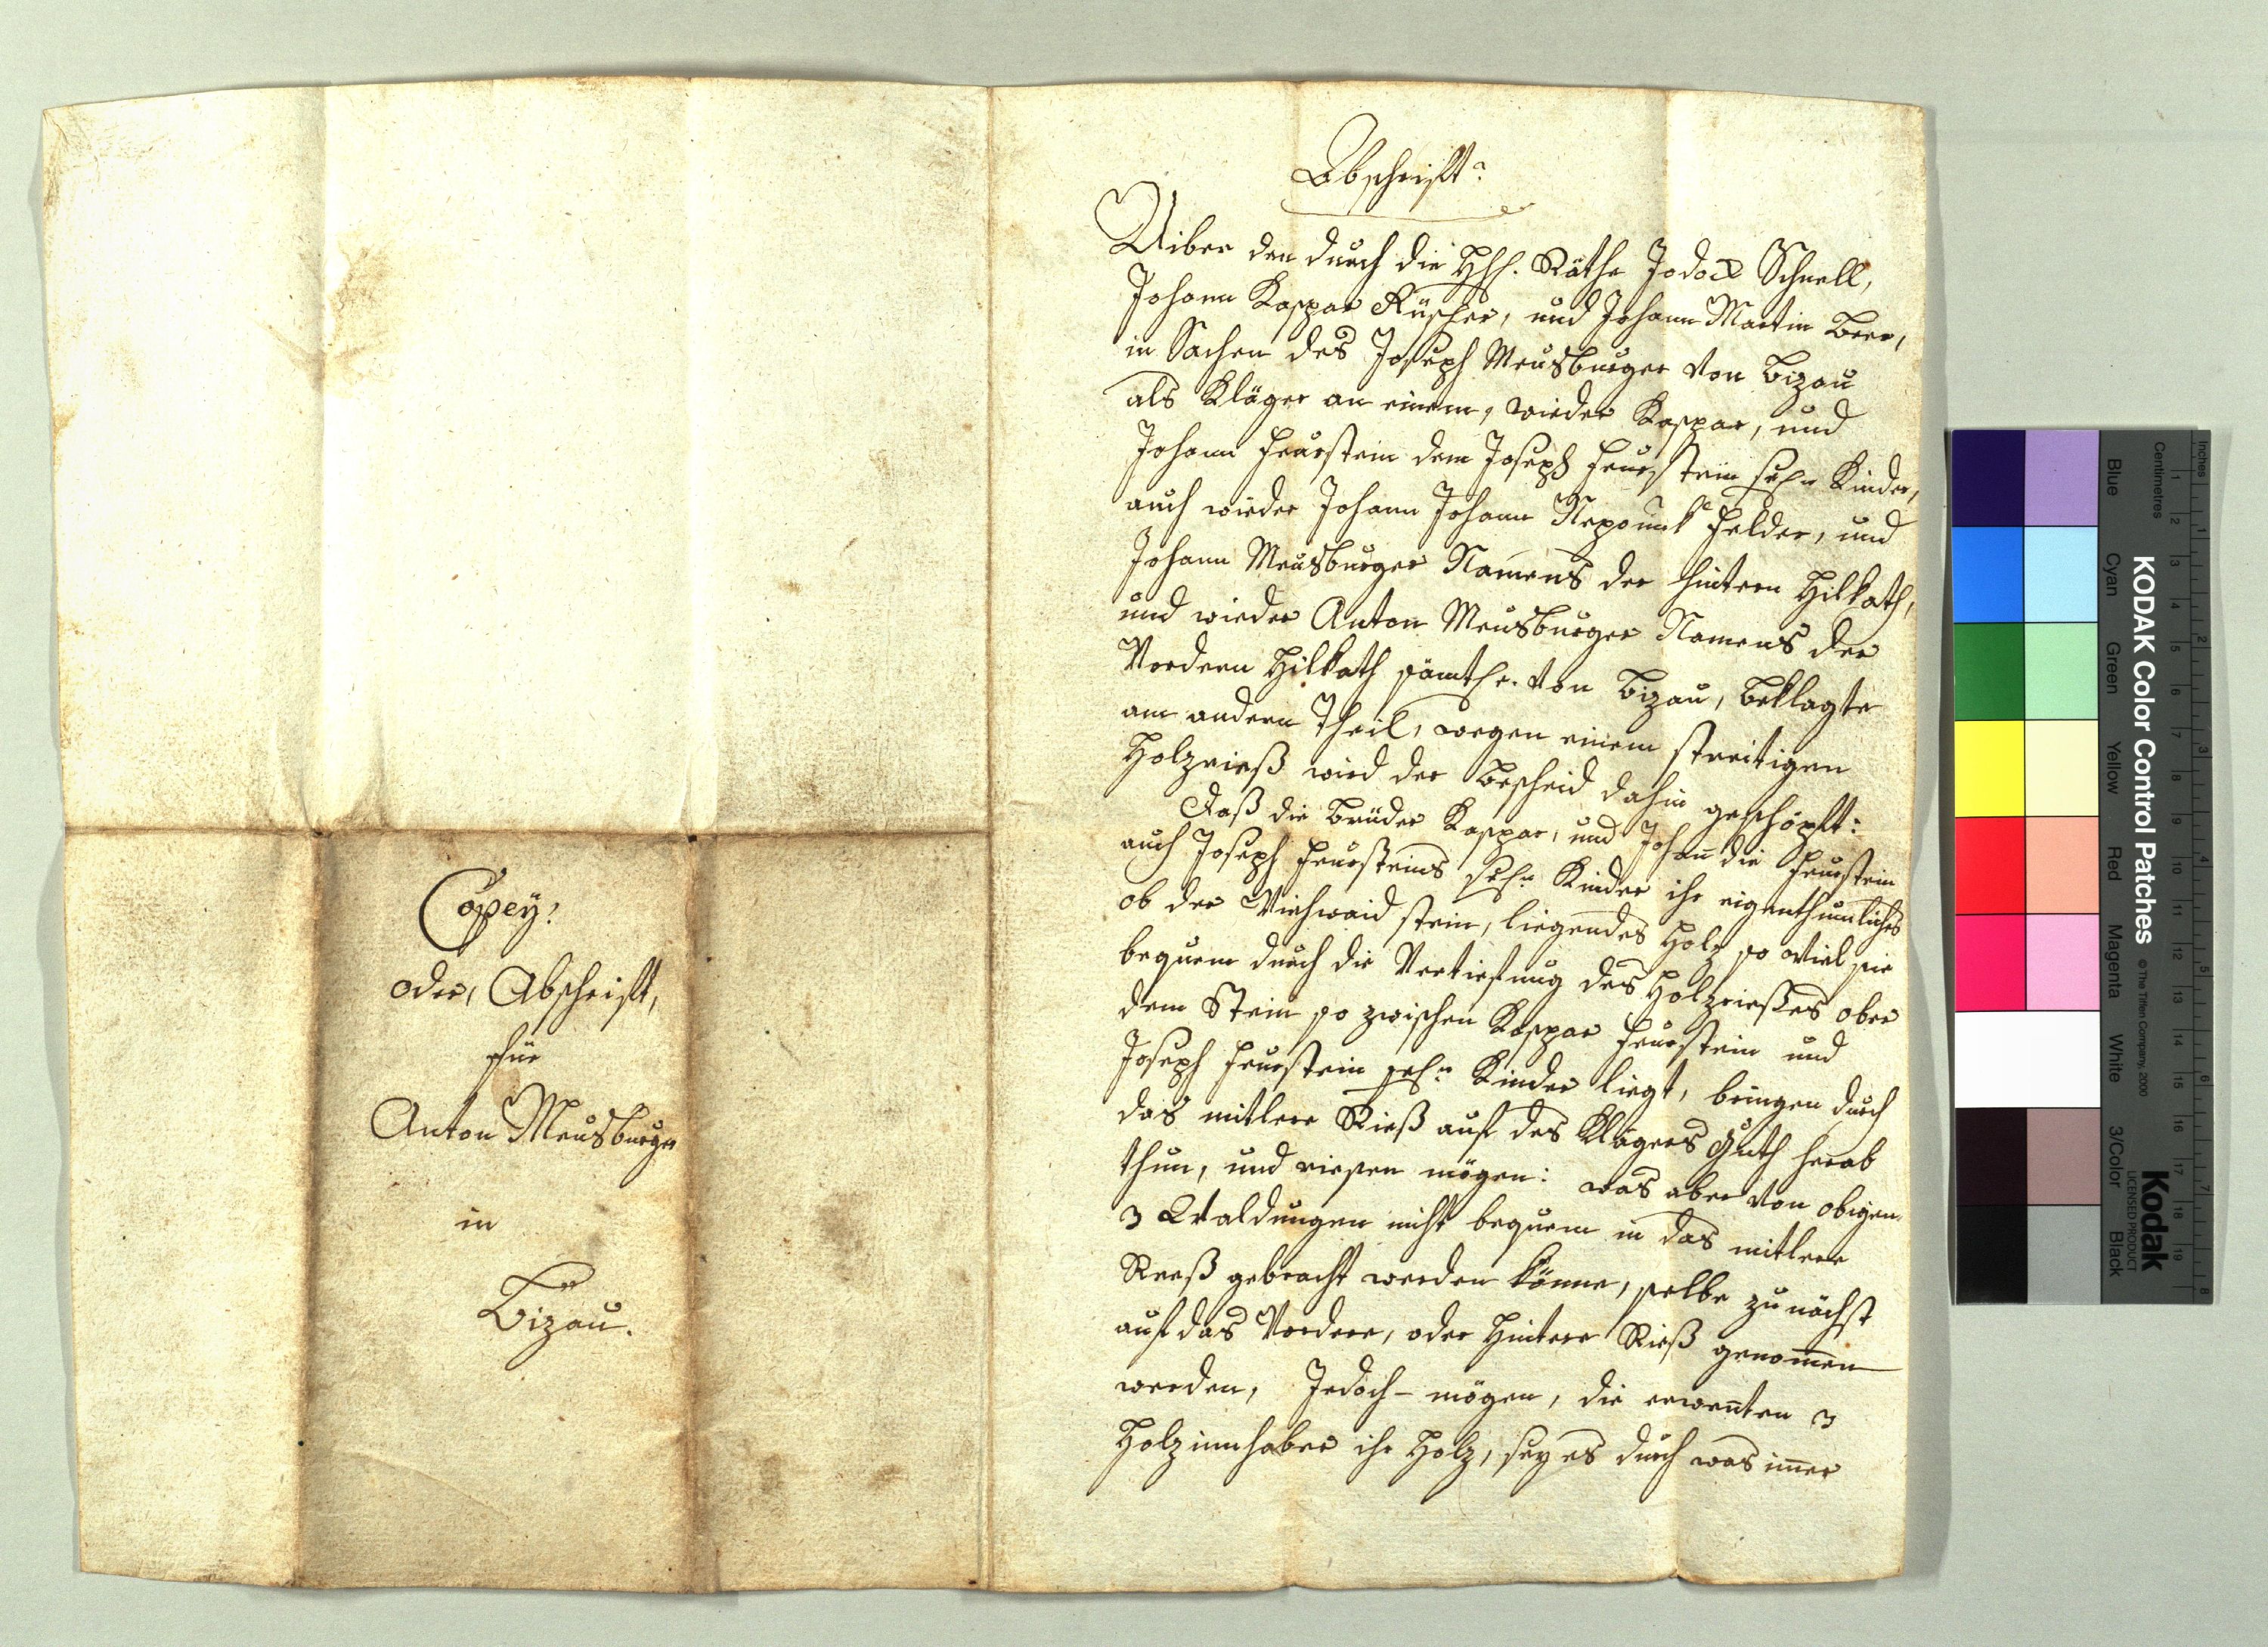 Copey!
oder, Abschrift,
für
Anton Meusburger
in
Bizau.
Abschrift.
Uiber den durch die HH. Räthe Jodock Schnell,
Johann Kaspar Rüscher, und Johann Martin Beer,
in Sachen des Joseph Meusburger von Bizau
als Kläger an einem, wieder Kaspar, und
Johann Feurstein dem Joseph Feurstein sel. Kinder,
auch wieder Johann Johann Nepomuk Felder, und
Johann Meusburger Namens der hintern Hilkath,
und wieder Anton Meusburger Namens der
Vordern Hilkath sämtl. von Bizau, Beklagte
am andern Theil, wegen einem streitigen
Holzrieß wird der Bescheid dahin geschöpft:
Daß die Brüder Kaspar, und Johann die Feurstein
auch Joseph Feursteins sel. Kinder ihr eigenthumliches
ob der Viehwaid stein, liegendes Holz so viel sie
bequem durch die Vertiefung des Holzrießes ober
dem Stein so zwischen Kaspar Feurstein und
Joseph Feurstein sel. Kinder liegt, bringen durch
das mitlere Rieß auf des Klägers Guth herab
thun, und riesen mögen: was aber von obigen
3 Waldungen nicht bequem in das mitlere
Rieß gebracht werden könne, selbe zu nächst
auf das Vordere, oder Hintere Rieß genommen
werden, Jedoch - mögen, die erwenten 3
Holzinnhaber ihr Holz, sey es durch was immer
KODAK Color Control Patches
© The Tiffen Company, 2000
Kodak
LICENSED PRODUCT
Blue Cyan Green Yellow Red Magenta White 3/Color Black
Inches 1 2 3 4 5 6 7 8
Centimetres 1 2 3 4 5 6 7 8 9 10 11 12 13 14 15 16 17 18 19